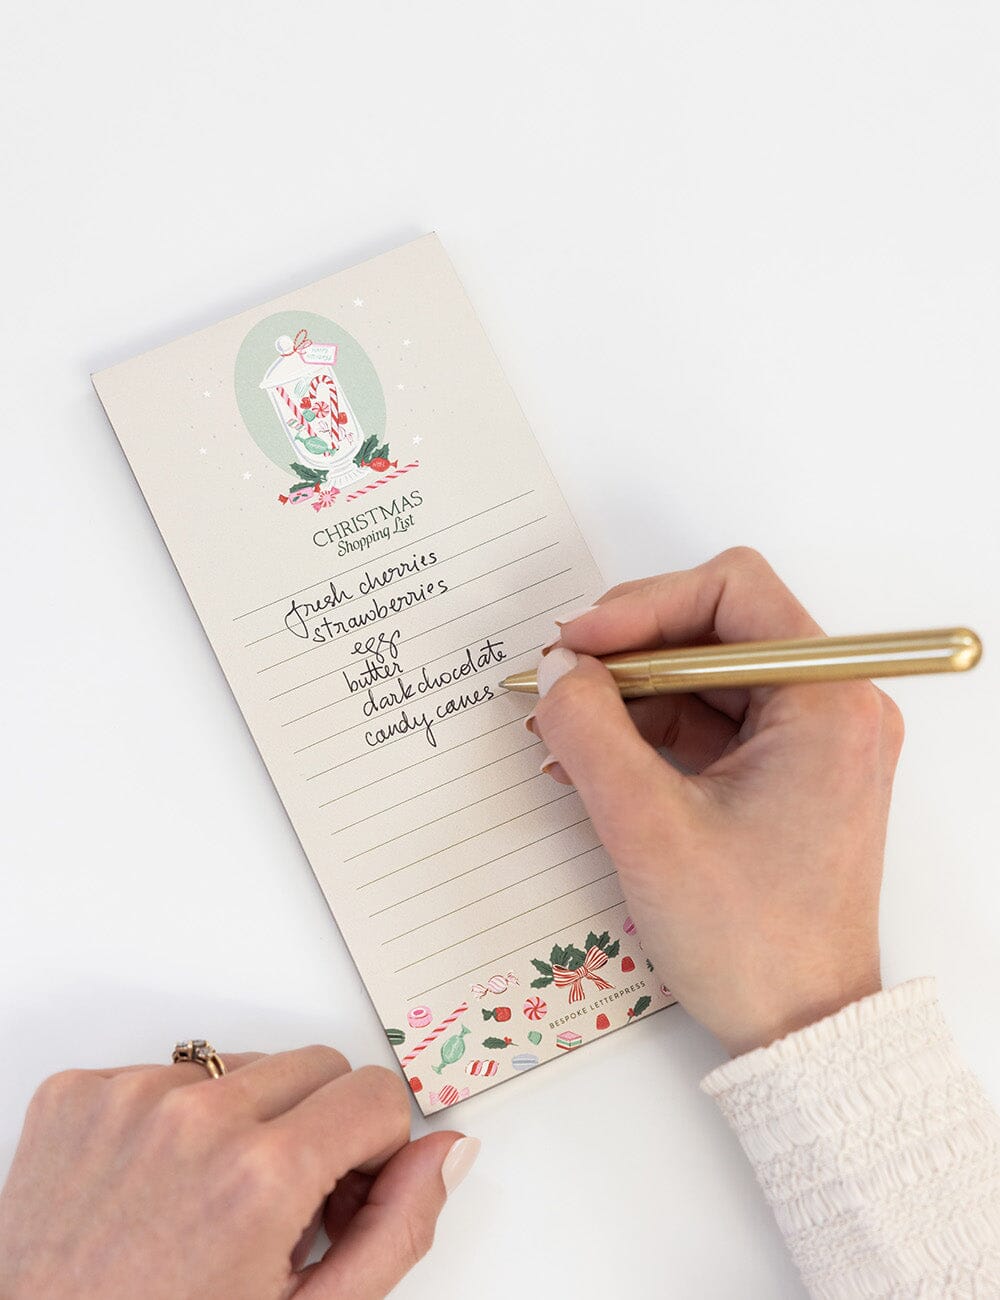 CHRISTMAS
Shopping List
fresh cherries
strawberries
egg
butter
dark chocolate
candy canes
BESPOKE LETTERPRESS